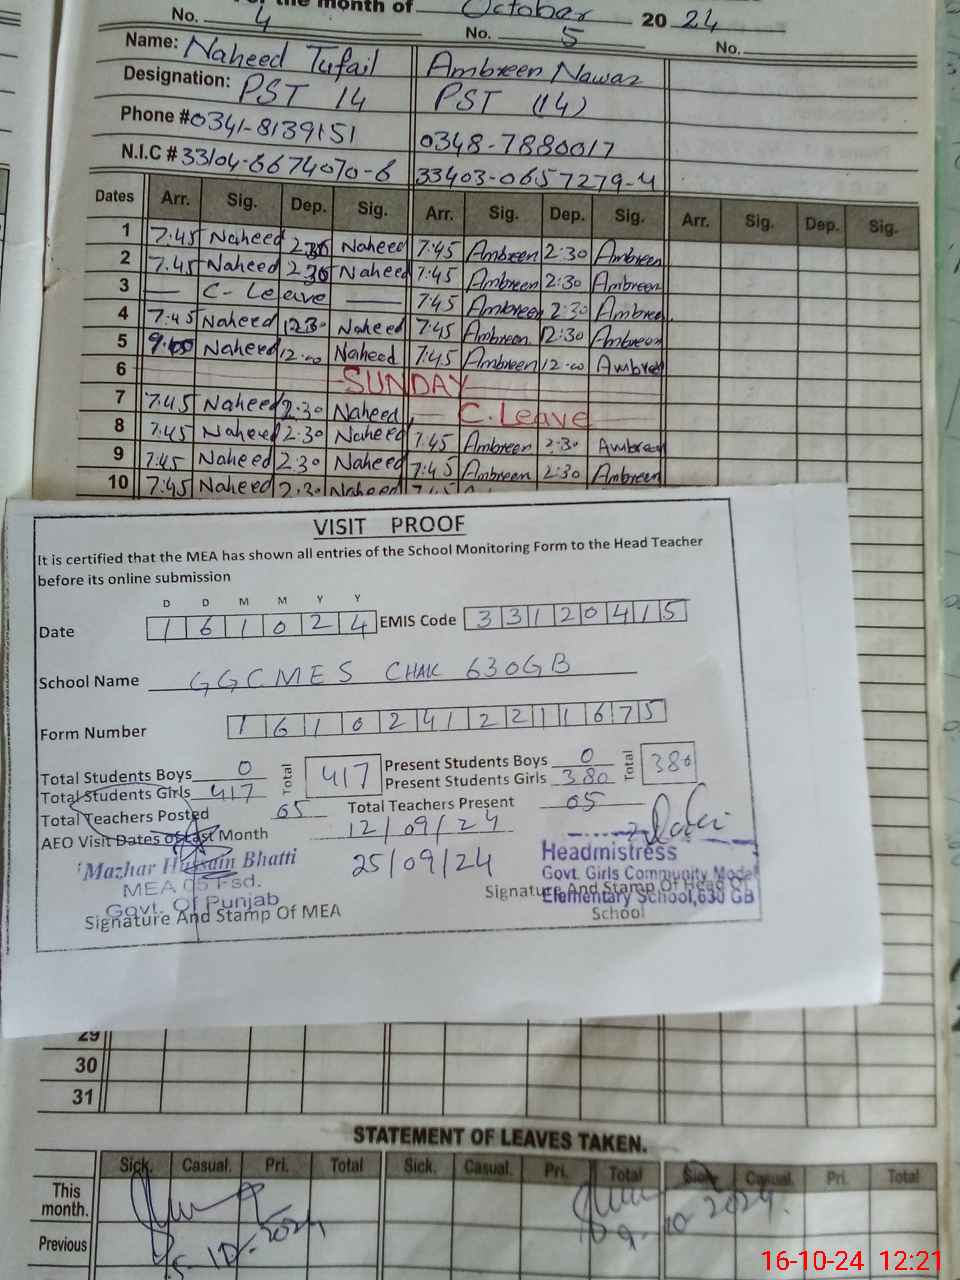 the month of October 20 24
No. 4 No. 5 No.
Name: Naheed Tufail Ambreen Nawaz
Designation: PST 14 PST (14)
Phone # 0341-8139151 0348-7880017
N.I.C # 33104-6674070-6 33403-0657279-4
Dates Arr. Sig. Dep. Sig. Arr. Sig. Dep. Sig. Arr. Sig. Dep. Sig.
1 7:45 Naheed 2:30 Naheed 7:45 Ambreen 2:30 Ambreen
2 7:45 Naheed 2:30 Naheed 7:45 Ambreen 2:30 Ambreen
3 — C-Leave — 7:45 Ambreen 2:30 Ambreen
4 7:45 Naheed 12:30 Naheed 7:45 Ambreen 12:30 Ambreen
5 9:00 Naheed 12:00 Naheed 7:45 Ambreen 12:00 Ambreen
6 SUNDAY
7 7:45 Naheed 2:30 Naheed — C.Leave
8 7:45 Naheed 2:30 Naheed 7:45 Ambreen 2:30 Ambreen
9 7:45 Naheed 2:30 Naheed 7:45 Ambreen 2:30 Ambreen
10 7:45 Naheed 2:30 Naheed
VISIT PROOF
It is certified that the MEA has shown all entries of the School Monitoring Form to the Head Teacher
before its online submission
D D M M Y Y
Date 1 6 1 0 2 4 EMIS Code 3 3 1 2 0 4 1 5
School Name GGCMES CHAK 630GB
Form Number 1 6 1 0 2 4 1 2 2 1 1 6 7 5
Total Students Boys 0 Total 417 Present Students Boys 0 Total 380
Total Students Girls 417 Present Students Girls 380
Total Teachers Posted 05 Total Teachers Present 05
AEO Visit Dates of Last Month 12/09/24
25/09/24
Mazhar Hussain Bhatti
MEA 05 Fsd.
Govt. Of Punjab
Signature And Stamp Of MEA
Headmistress
Govt. Girls Community Model
Elementary School, 630 GB
Signature And Stamp Of Head Of
School
29
30
31
STATEMENT OF LEAVES TAKEN.
Sick. Casual. Pri. Total Sick. Casual. Pri. Total Sick Casual. Pri. Total
This
month.
Previous
16-10-24 12:21